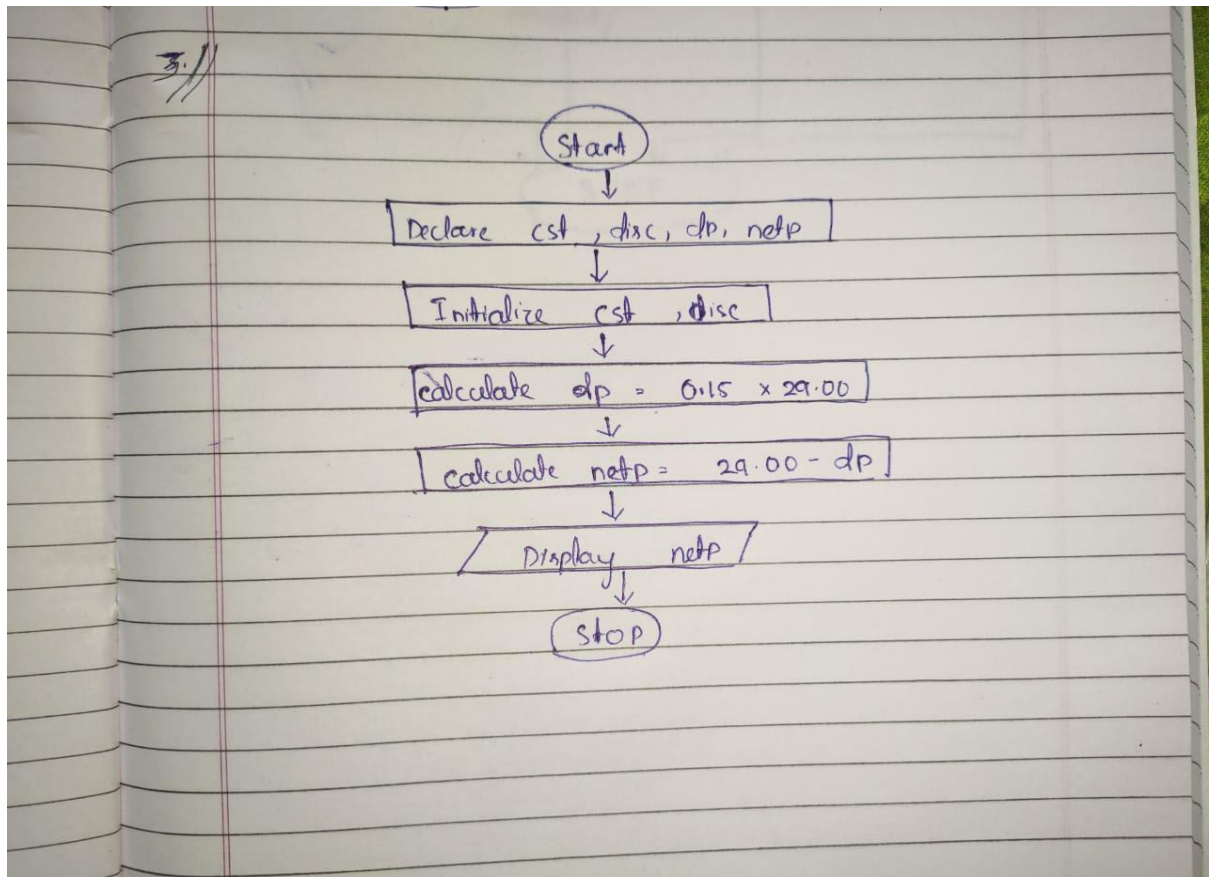 3.
Start
Declare cst , disc, dp, netp
Initialize cst , disc
calculate dp = 0.15 × 29.00
calculate netp = 29.00 - dp
Display netp
Stop